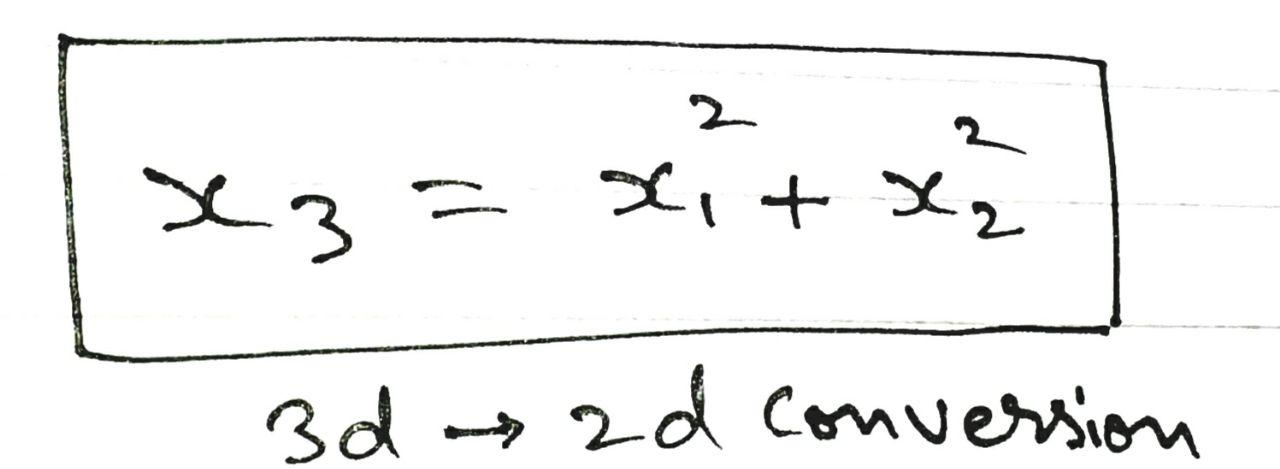 x₃ = x₁² + x₂²
3d → 2d conversion